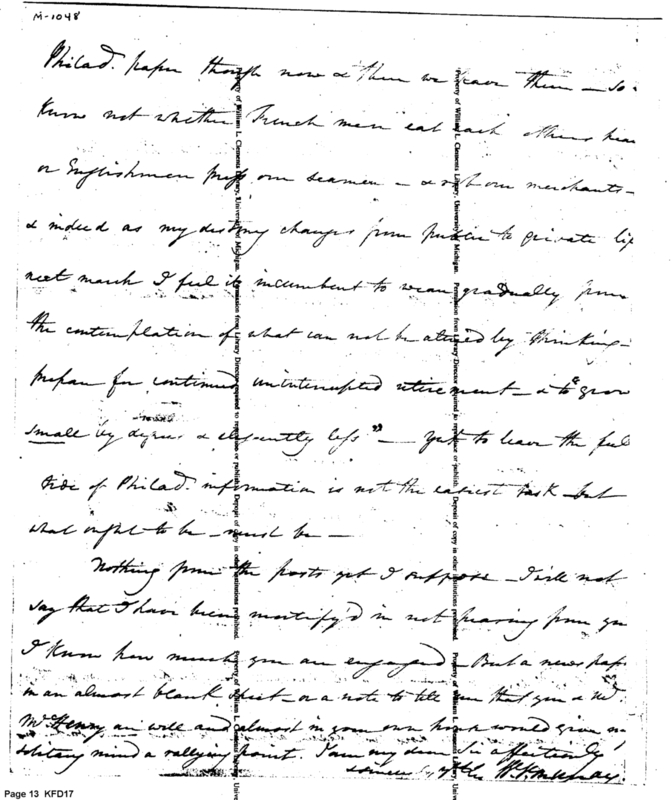 M-1048
Philad. paper though now & then we have them – so I
Know not whether French men eat each others hear
or Englishmen press our seamen – & rob our merchants –
& indeed as my destiny changes from public to private life
next march I feel it incumbent to wean gradually from
the contemplation of what can not be altered by thinking –
prepare for continued uninterrupted retirement – & to "grow
small by degrees & elegantly less" – yet to leave the full
tide of Philad. information is not the easiest task – but
what ought to be – must be –
Nothing from the posts yet I suppose – I will not
say that I have been mortify'd in not hearing from you
I Know how much you are engaged – But a news pap
in an almost blank sheet – or a note to tell me that you &
McHenry are well and almost in your own house would give my
solitary mind a rallying point. I am my dear Sir affectionately
sincerely yrs W. V. Murray
Property of William L. Clements Library, University of Michigan. Permission from Library Director required to reproduce or publish. Deposit of copy in other institutions prohibited. Property of William L. Clements Library, Unive
Property of William L. Clements Library, University of Michigan. Permission from Library Director required to reproduce or publish. Deposit of copy in other institutions prohibited. Property of William L. Clements Library, Unive
Page 13 KFD17